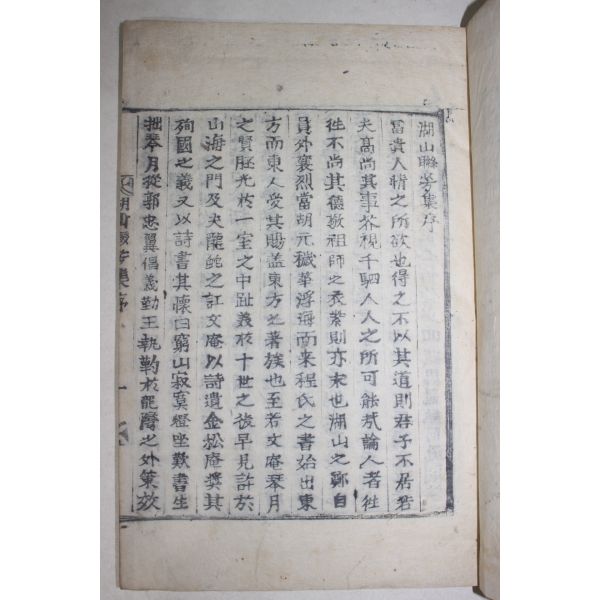 湖山聯芳集序
富貴人情之所欲也得之不以其道則君子不居若
夫高尚其事芥視千駟人人之所可能哉論人者徃
徃不尚其德敬祖師之炙業則亦末也湖山之鄭自
員外襄烈當胡元穢華浮海而来程氏之書始出東
方而東人受其賜盖東方之著族也至若文庵琴月
之賢胚光於一室之中趾義於十世之後早見許於
山海之門及夫龍蛇之訌文庵以詩遺金松庵奬其
殉國之義又以詩書其懷曰窮山寂寞燈坐歎書生
拙琴月從郭忠翼倡義勤王執靮於龍灣之外策效
湖山聯芳集序
一